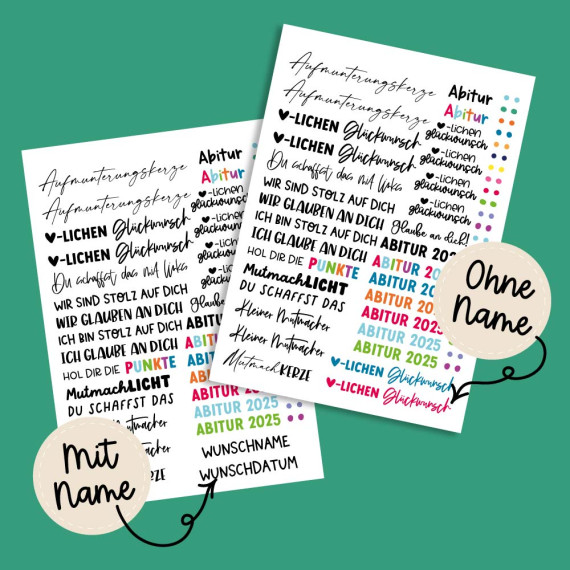 Aufmunterungskerze
Aufmunterungskerze
♥-LICHEN Glückwunsch
♥-LICHEN Glückwunsch
Du schaffst das mit Links
WIR SIND STOLZ AUF DICH
WIR GLAUBEN AN DICH
ICH BIN STOLZ AUF DICH
ICH GLAUBE AN DICH
HOL DIR DIE PUNKTE
MutmachLICHT
DU SCHAFFST DAS
Abitur
Abitur
♥-lichen
glückwunsch
♥-lichen
♥-lichen
♥-lichen
Glaube
ABITUR
ABITUR 2025
ABITUR 2025
WUNSCHNAME
WUNSCHDATUM
Mit
Name
Aufmunterungskerze
Aufmunterungskerze
♥-LICHEN Glückwunsch
♥-LICHEN Glückwunsch
Du schaffst das mit Links
WIR SIND STOLZ AUF DICH
WIR GLAUBEN AN DICH
ICH BIN STOLZ AUF DICH
ICH GLAUBE AN DICH
HOL DIR DIE PUNKTE
MutmachLICHT
DU SCHAFFST DAS
Kleiner Mutmacher
Kleiner Mutmacher
MutmachKERZE
Abitur
Abitur
♥-lichen
glückwunsch
♥-lichen
glückwunsch
♥-lichen
glückwunsch
♥-lichen
glückwunsch
Glaube an dich!
ABITUR 2025
ABITUR 202
ABITUR 202
ABITUR 202
ABITUR 2025
ABITUR 2025
ABITUR 2025
♥-LICHEN Glückwunsch
♥-LICHEN Glückwunsch
Ohne
Name